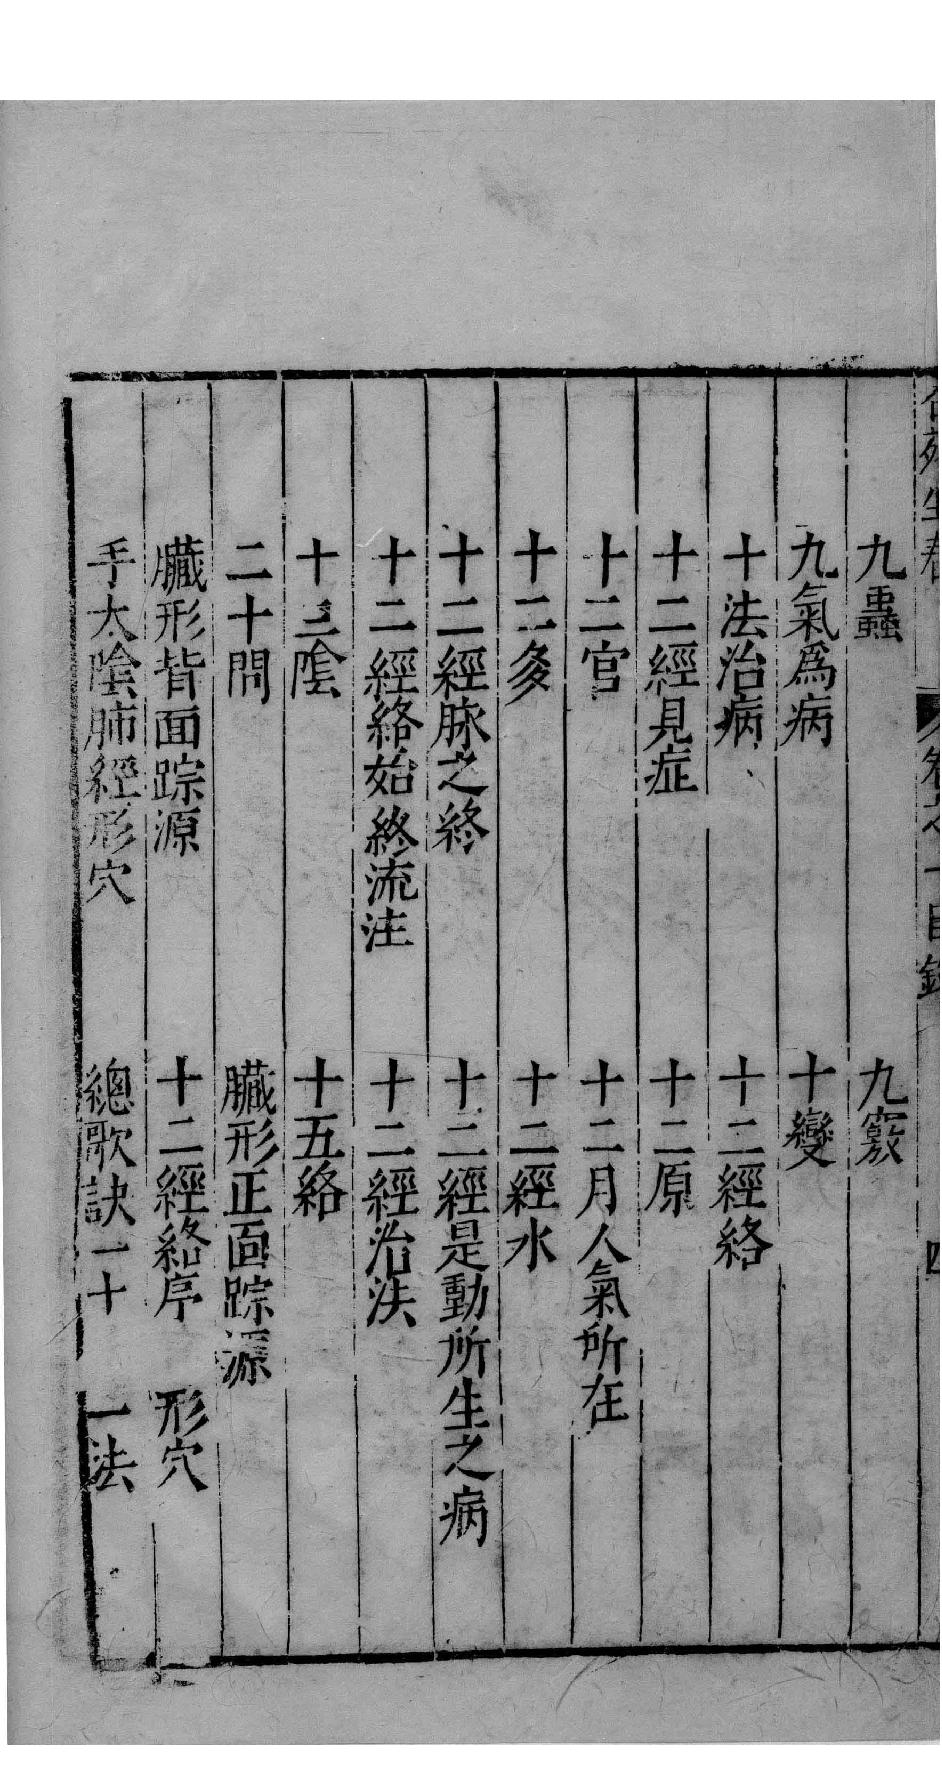 九蟲　九竅
九氣爲病　十變
十法治病　十二經絡
十二經見症　十二原
十二官　十二月人氣所在
十二多　十二經水
十二經脉之終　十二經是動所生之病
十二經絡始終流注　十二經治法
十三陰　十五絡
二十問　臟形正面踪源
臟形背面踪源　十二經絡序　形穴
手太陰肺經形穴　總歌訣一十　一法
卷之一目錄
四